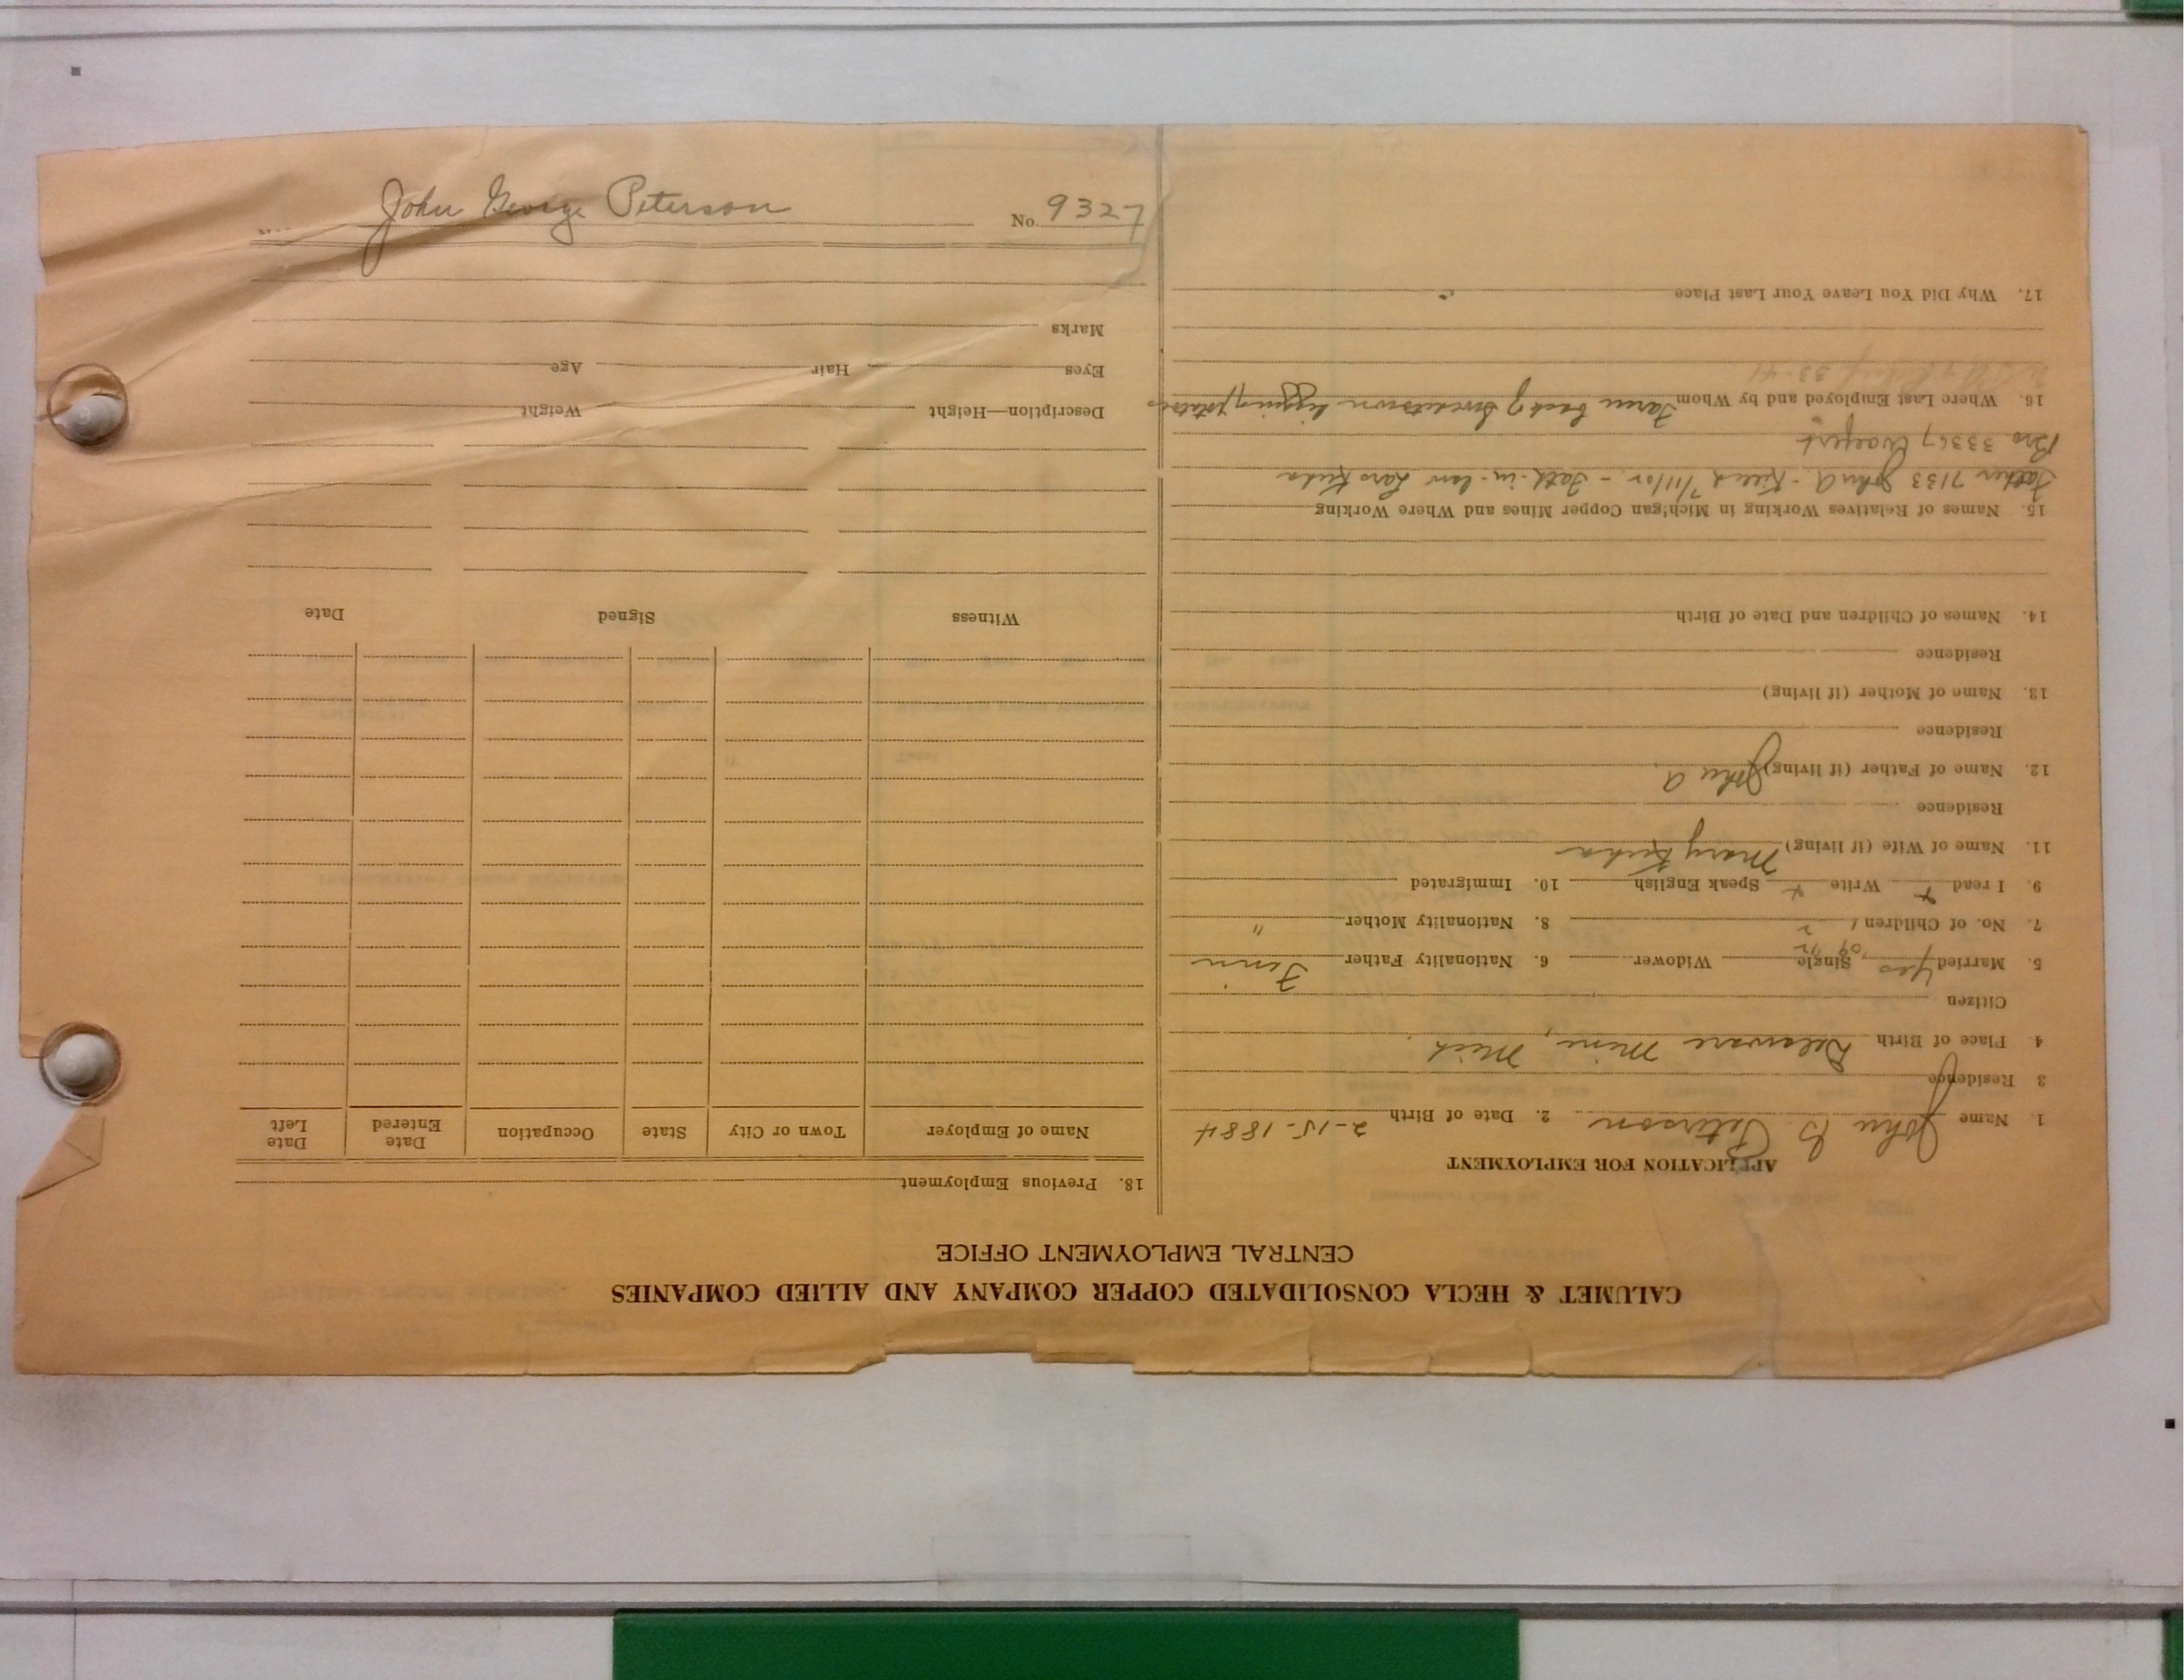 CALUMET & HECLA CONSOLIDATED COPPER COMPANY AND ALLIED COMPANIES
CENTRAL EMPLOYMENT OFFICE
APPLICATION FOR EMPLOYMENT
1. Name John G. Peterson 2. Date of Birth 2-15-1884
3 Residence
4. Place of Birth Delaware Mine, Mich
Citizen
5. Married Yes '09 Single Widower 6. Nationality Father Finn
7. No. of Children 1 2 8. Nationality Mother "
9. I read + Write + Speak English 10. Immigrated
11. Name of Wife (if living) Mary Kuha
Residence
12. Name of Father (if living) John A
Residence
13. Name of Mother (if living)
Residence
14. Names of Children and Date of Birth
15. Names of Relatives Working in Michigan Copper Mines and Where Working
Father 7133 John A. - Killed 7/11/02 - Fath-in-law Lars Kuha
Bro 33367
16. Where Last Employed and by Whom Farm back of Swedetown digging potatoes
33-41
17. Why Did You Leave Your Last Place
18. Previous Employment
Name of Employer Town or City State Occupation Date Entered Date Left
Witness Signed Date
Description—Height Weight
Eyes Hair Age
Marks
John George Peterson No. 9327